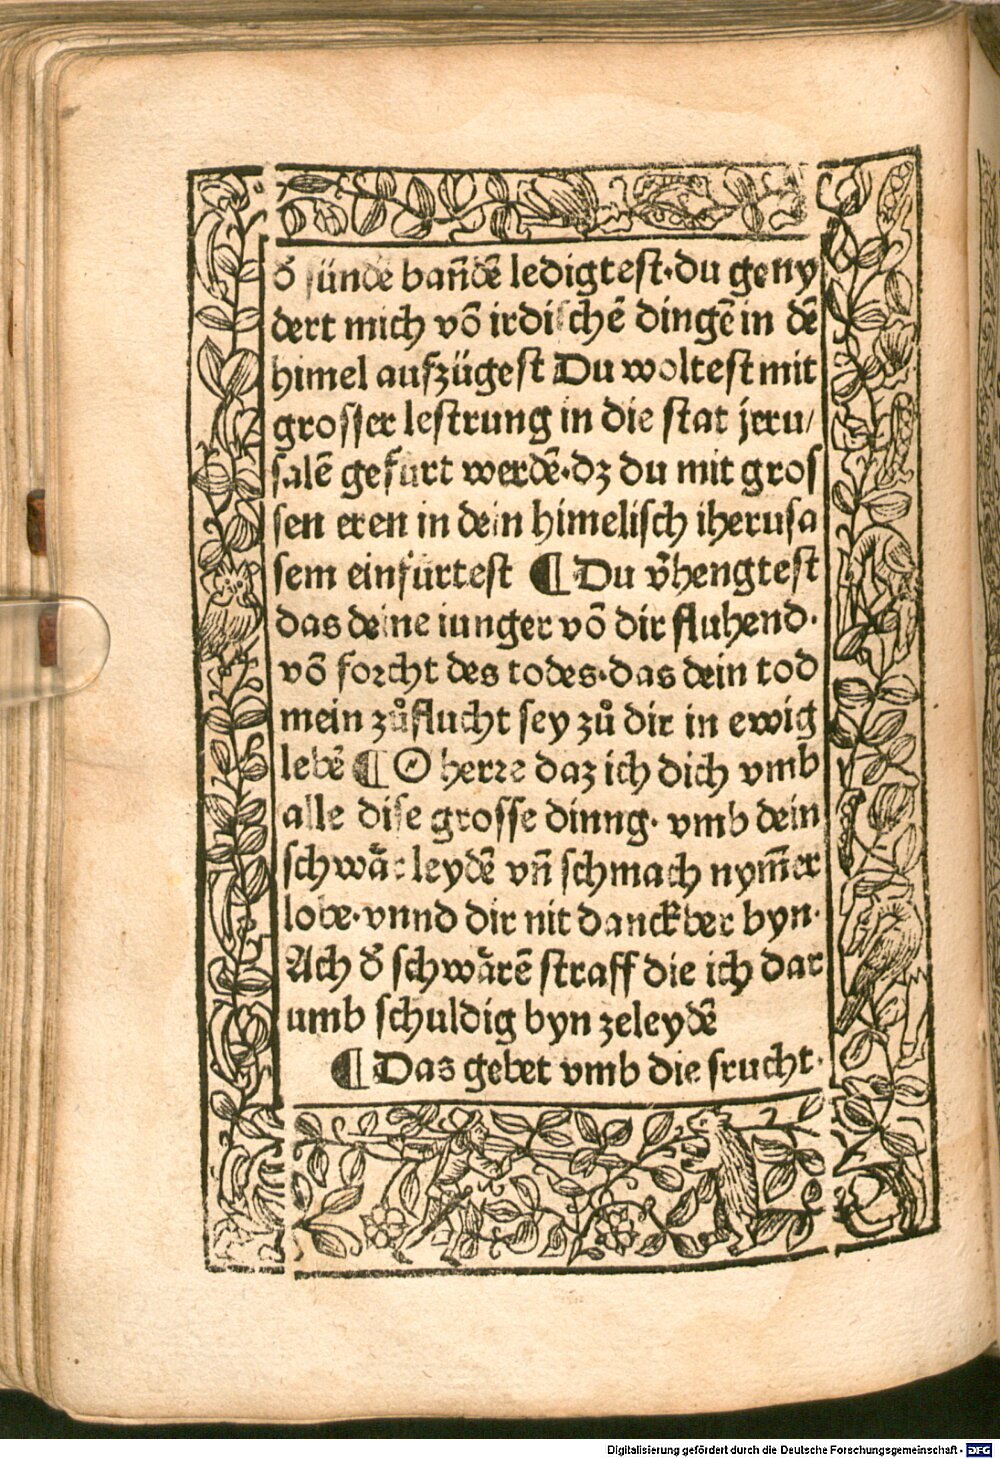 d̄ sündē bañdē ledigtest·du geny
dert mich vō irdischē dingē in dē
himel aufzügest Du woltest mit
grosser lestrung in die stat jeru/
salē gefürt werdē·dz du mit gros
sen eren in dein himelisch iherusa
sem einfürtest ¶ Du v̄hengtest
das deine iunger vō dir fluhend·
vō forcht des todes·das dein tod
mein zůflucht sey zů dir in ewig
lebē ¶ O herre daz ich dich vmb
alle dise grosse dinng· vmb dein
schwär leydē vñ schmach nym̄er
lobe·vnnd dir nit danckber byn·
Ach d̄ schwärē straff die ich dar
umb schuldig byn zeleydē
¶ Das gebet vmb die frucht·
Digitalisierung gefördert durch die Deutsche Forschungsgemeinschaft - DFG